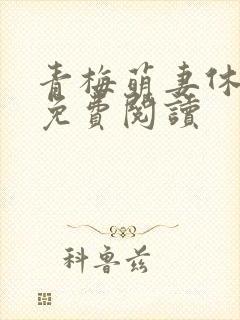 青梅萌妻休
免費閱讀
科鲁兹